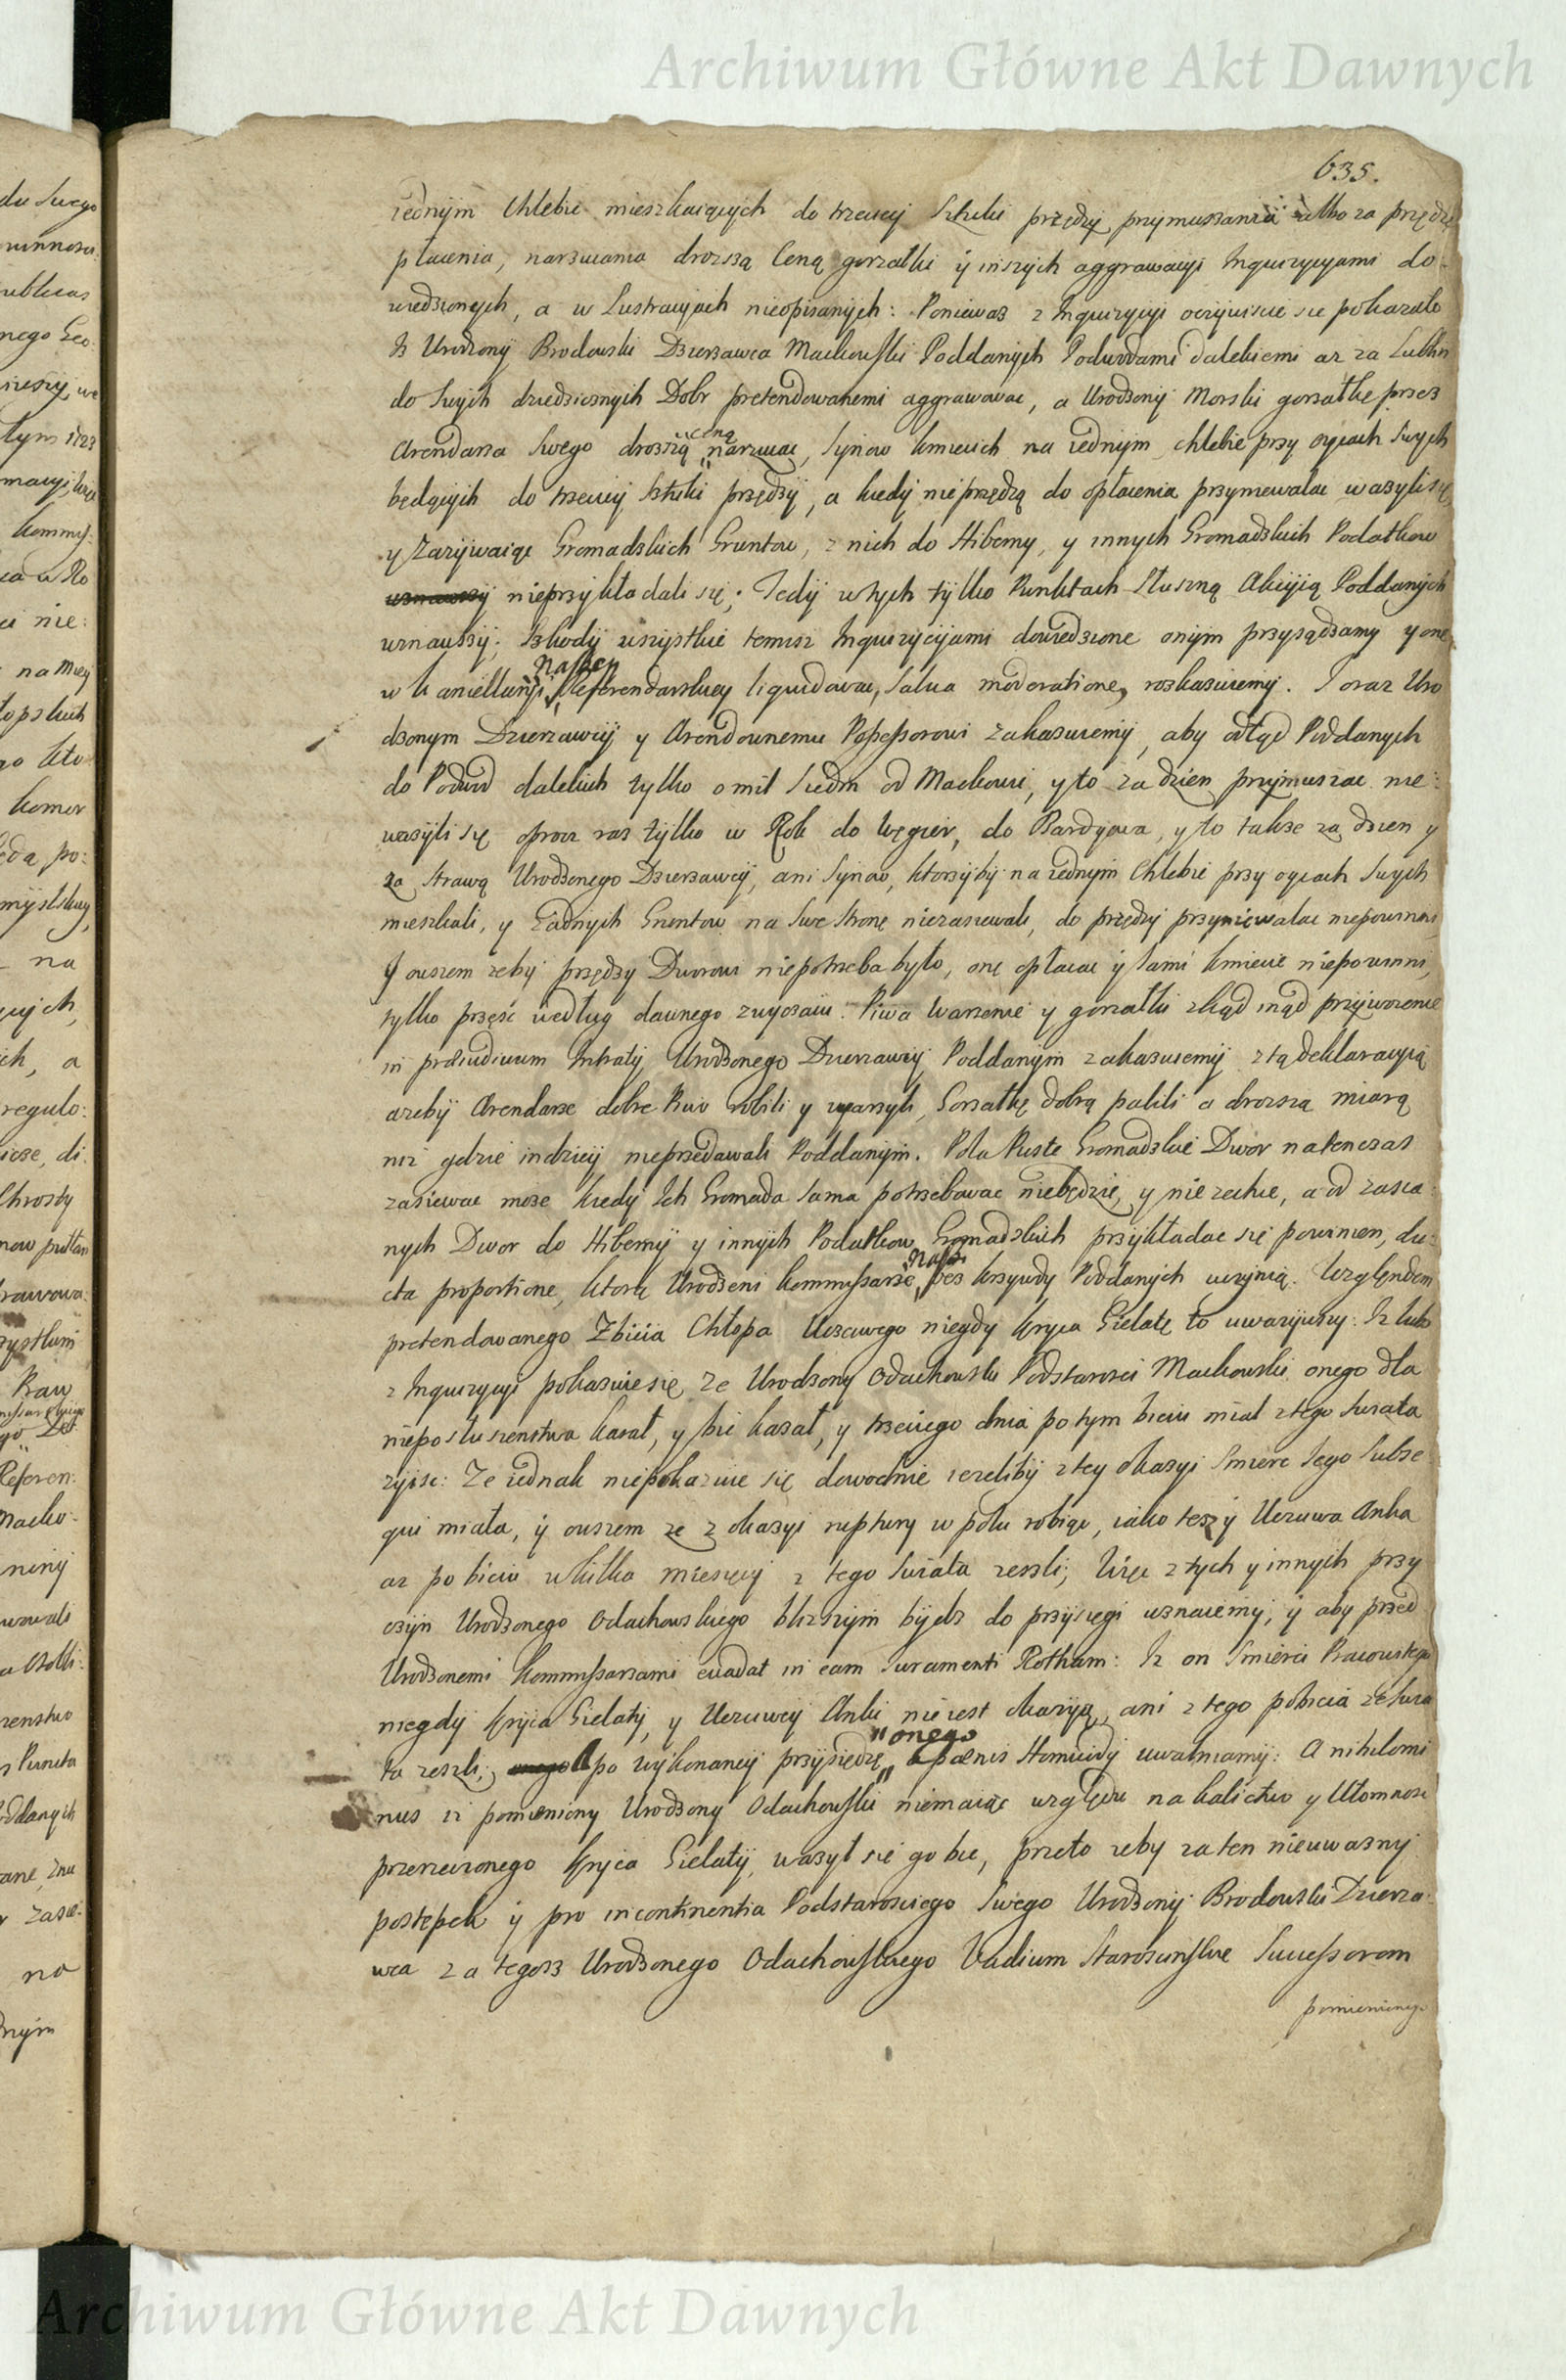 Archiwum Główne Akt Dawnych
635.
iednym Chlebie mieszkaiących do trzeciey Sztuki przędzy przymuszania albo za przędzę
płacenia, narzucania drozszą Ceną gorzałki y inszych aggrawacyi Inquizycyami do
wiedzionych, a w Lustracyiach nieopisanych: Poniewasz z Inquizycyi oczywiscie sie pokazało
Iz Urodzony Brodowski Dzierzawca Machowski Poddanych Podwodami dalekiemi az za Lublin
do Swych dziedzicznych Dobr pretendowanemi aggrawowac, a Urodzony Morski gorzałkę przez
Arendarza Swego drozszą narzucac, Synow kmiecich na iednym chlebie przy oycach Swych
ceną
będących do trzeciey Sztuki przędzy, a kiedy nieprzędzą do opłacenia przymewalac wazyli się
y Zazywaiąc Gromadzkich Gruntow, z nich do Hiberny, y innych Gromadzkich Podatkow
nieprzykładali się; Tedy w tych tylko Punktach Słuszną Akcyią Poddanych
uznawszy; Szkody wszystkie temisz Inquizycyiami dowiedzione onym przysądzamy y one
w Kancellaryi Referendarskiey liquidowac, Salva moderatione, roskazuiemy. I oraz Uro
Naszey
dzonym Dzierzawcy y Arendownemu Possessorowi zakazuiemy, aby odtąd Poddanych
do Podwod dalekich tylko o mil Siedm od Machowi, y to za dzien przymuszac nie:
wazyli się oprocz raz tylko w Rok do Węgier, do Bardyowa, y to takze za dzien y
za Strawą Urodzonego Dzierzawcy, ani Synow, ktorzyby na iednym Chlebie przy oycach Swych
mieszkali, y Zadnych Gruntow na Swe Stronę niezasiewali, do przędzy przyniewalac niepowinni
Y owszem zeby przędzy Dworowi niepotrzeba było, onę opłacac y Sami kmiecie niepowinni,
tylko prząść według dawnego zwyczaiu. Piwa Warzenie y gorzałki zkąd inąd przywozenie
in praeiudicium Intraty Urodzonego Dzierzawcy Poddanym zakazuiemy z tą deklaracyią
azeby Arendarze dobre Piwo robili y warzyli, Gorzałkę dobrą palili a drozszą miarą
niz gdzie indziey nieprzedawali Poddanym. Pola Puste Gromadzkie Dwor natenczas
zasiewac moze kiedy Ich Gromada Sama potrzebowac niebędzie, y nie zechce, a od zasia:
nych Dwor do Hiberny y innych Podatkow Gromadzkich przykładac się powinien, du:
cta proportione, ktorą Urodzeni Kommissarze bez krzywdy Poddanych uczynią. Względem
Nasi
pretendowanego Zbicia Chłopa Uczciwego niegdy Hryca Gielatę to uwazywszy: Iz lubo
z Inquizycyi pokazuie się ze Urodzony Odachowski Podstarosci Machowski onego dla
nieposłuszenstwa karał, y bic kazał, y trzeciego dnia potym biciu miał z tego Swiata
zyisc: Ze iednak niepokazuie się dowodnie iezeliby z tey okazyi Smierc Jego Subse
qui miała, y owszem ze z okazyi ruptury w polu robiąc, iako tesz y Uczciwa Anka
az po biciu w kilka miesięcy z tego Swiata zeszli; Więc z tych y innych przy
czyn Urodzonego Odachowskiego blizszym bydz do przysięgi uznaiemy, y aby przed
Urodzonemi Kommissarzami evadat in eam Juramenti Rotham: Iz on Smierci Pracowitego
niegdy Hryca Gielaty, y Uczciwey Anki nie iest okazyą, ani z tego pobicia ze Swia
ta zeszli; A po wykonaney przysiędze a paenis Homicidy uwalniamy: A nihilomi
onego
nus iz pomieniony Urodzony Odachowski niemaiąc względu na kalictwo y Ułomnosc
przerzeczonego Hryca Gielaty, wazył sie go bic, przeto zeby za ten nieuwazny
postępek y pro incontinentia Podstarosciego Swego Urodzony Brodowski Dzierza:
wca za tegosz Urodzonego Odachowskiego Vadium Staroscinskie Successorom
pomienionego
Archiwum Główne Akt Dawnych